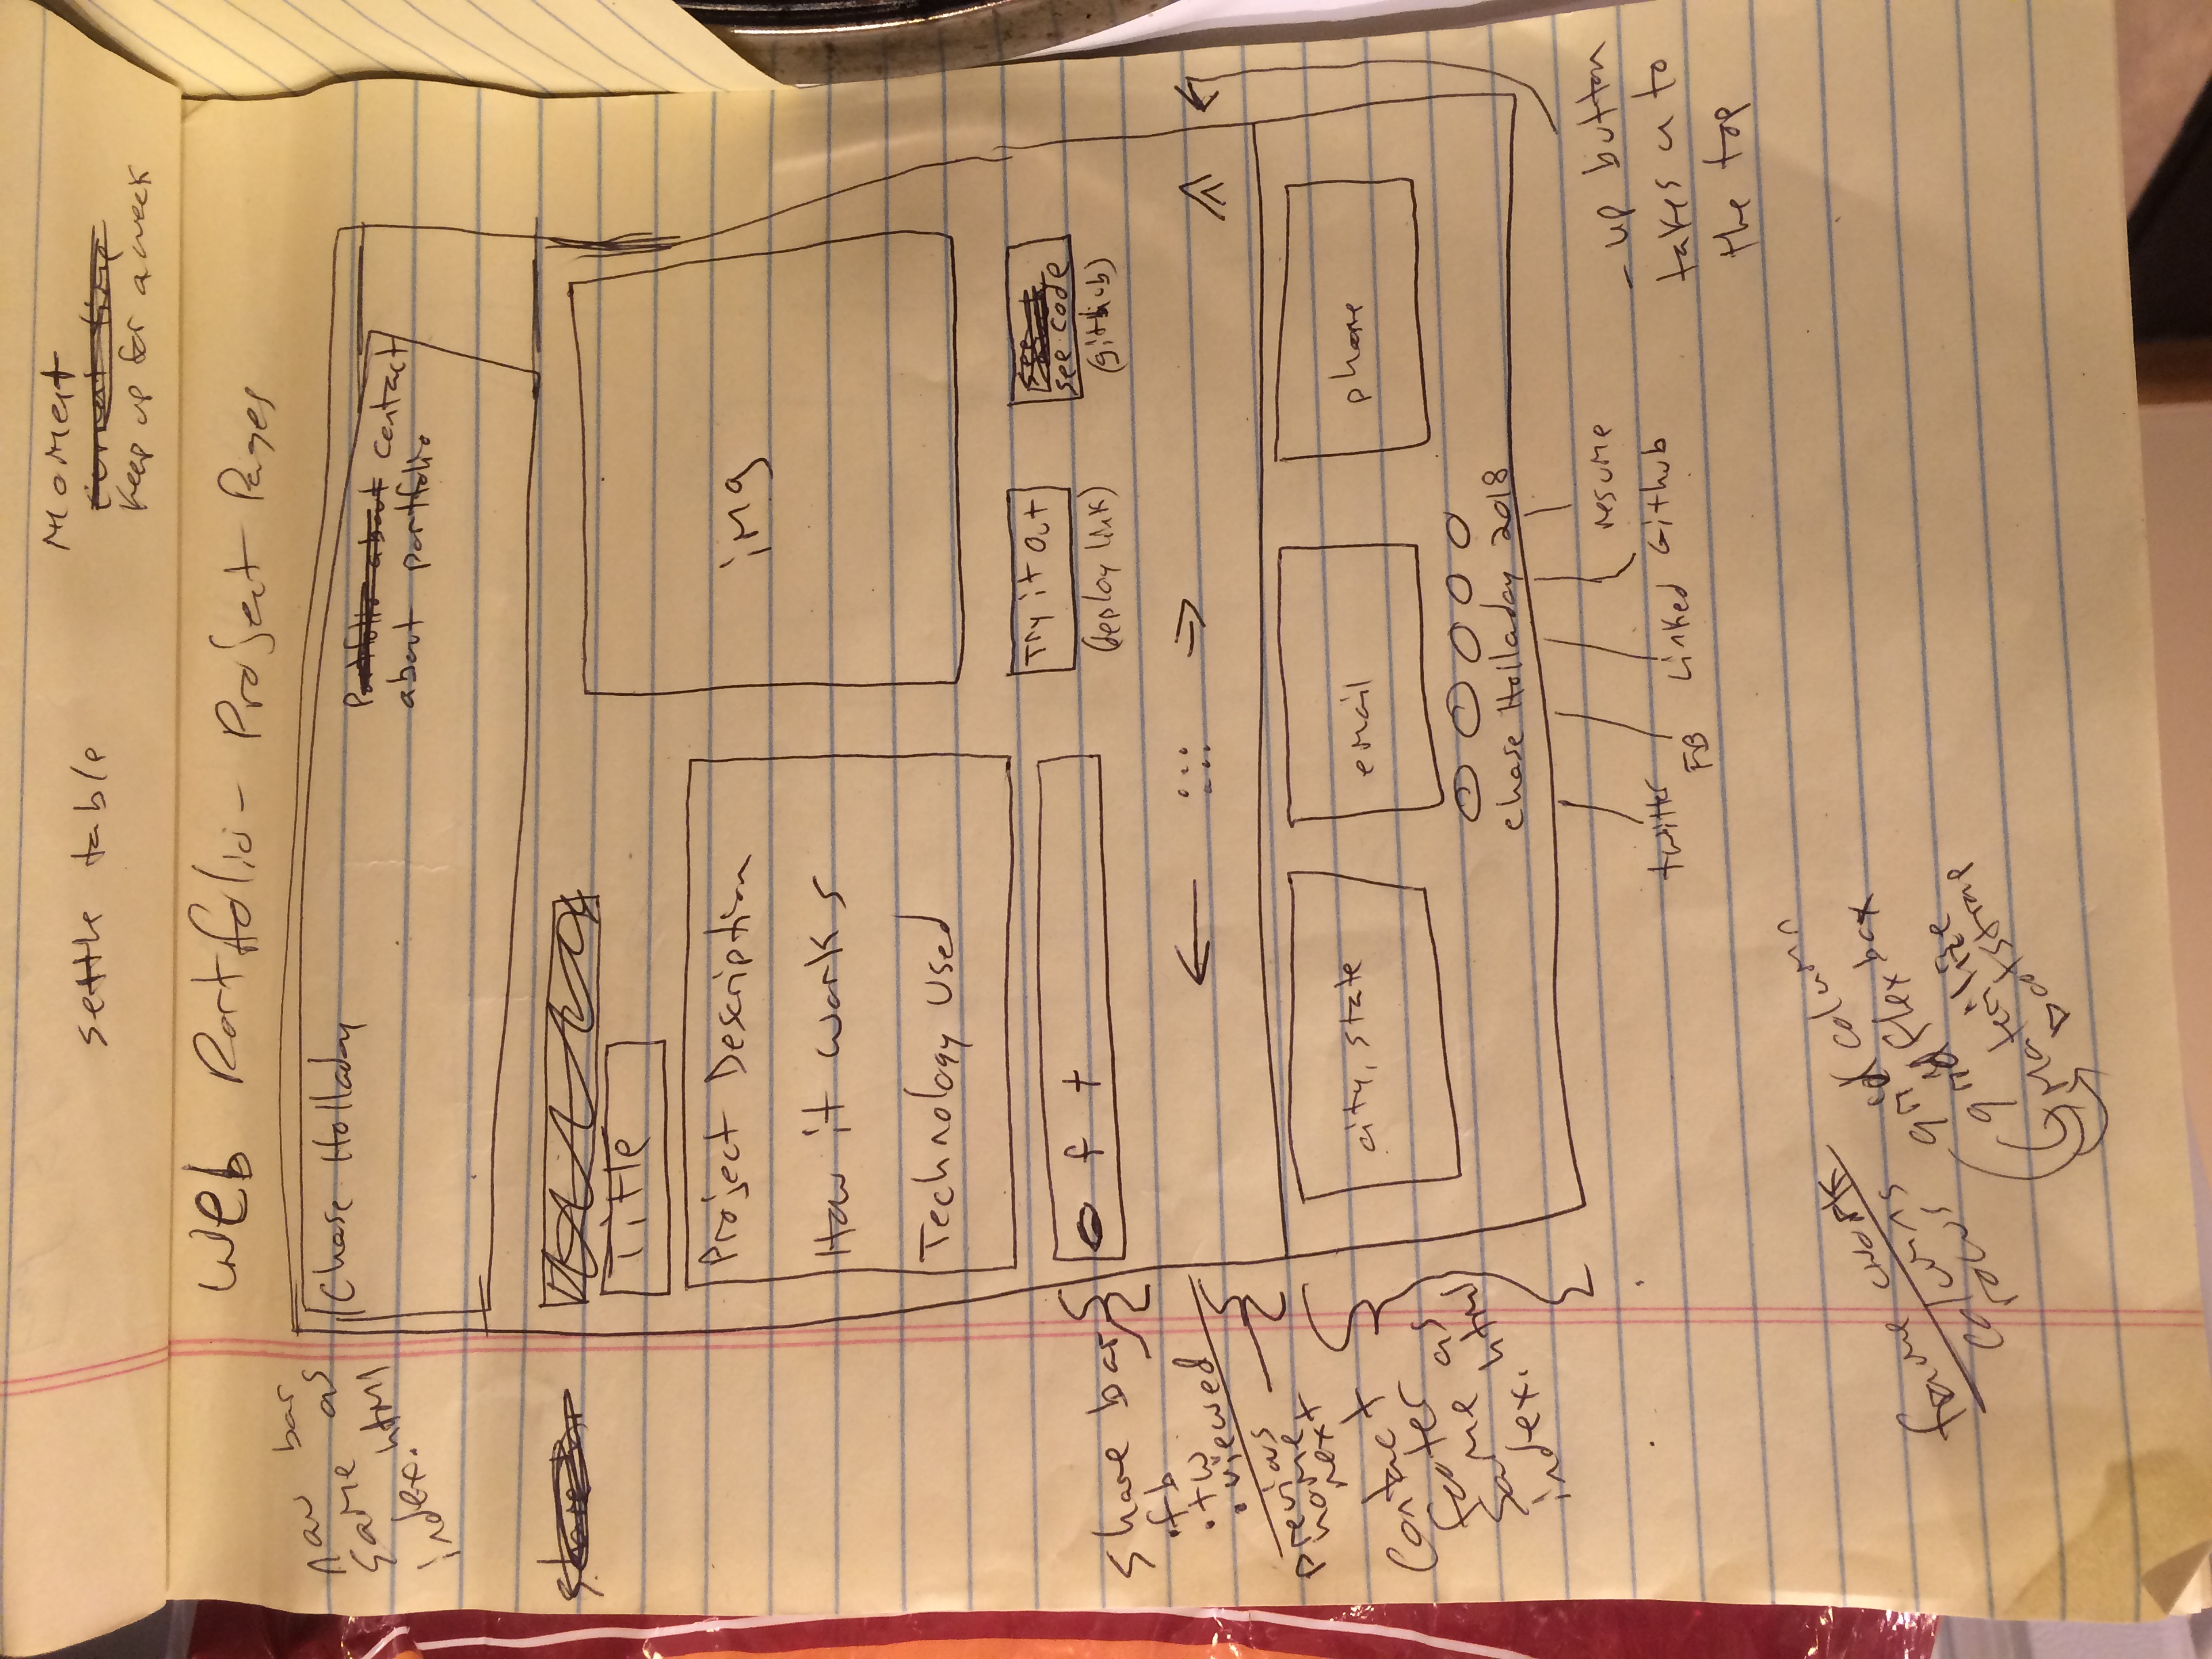 settle table
Moment
current time
keep up for a week
Web Portfolio - Project Pages
nav bar
same as
index.html
Chase Holladay
Portfolio about contact
about portfolio
Title
Project Description
How it works
Technology Used
img
f t
Try it out
(deploy link)
see code
(github)
share bar
.fb
.tw
.viewed
previous
home
next
← ::: →
Contact
footer
same as
index.html
city, state
email
phone
Chase Holladay 2018
twitter
FB
Linked
Github
resume
- up button
takes u to
the top
frame work
columns
rows
grid column
grid flexbox
Materilize
bootstrap